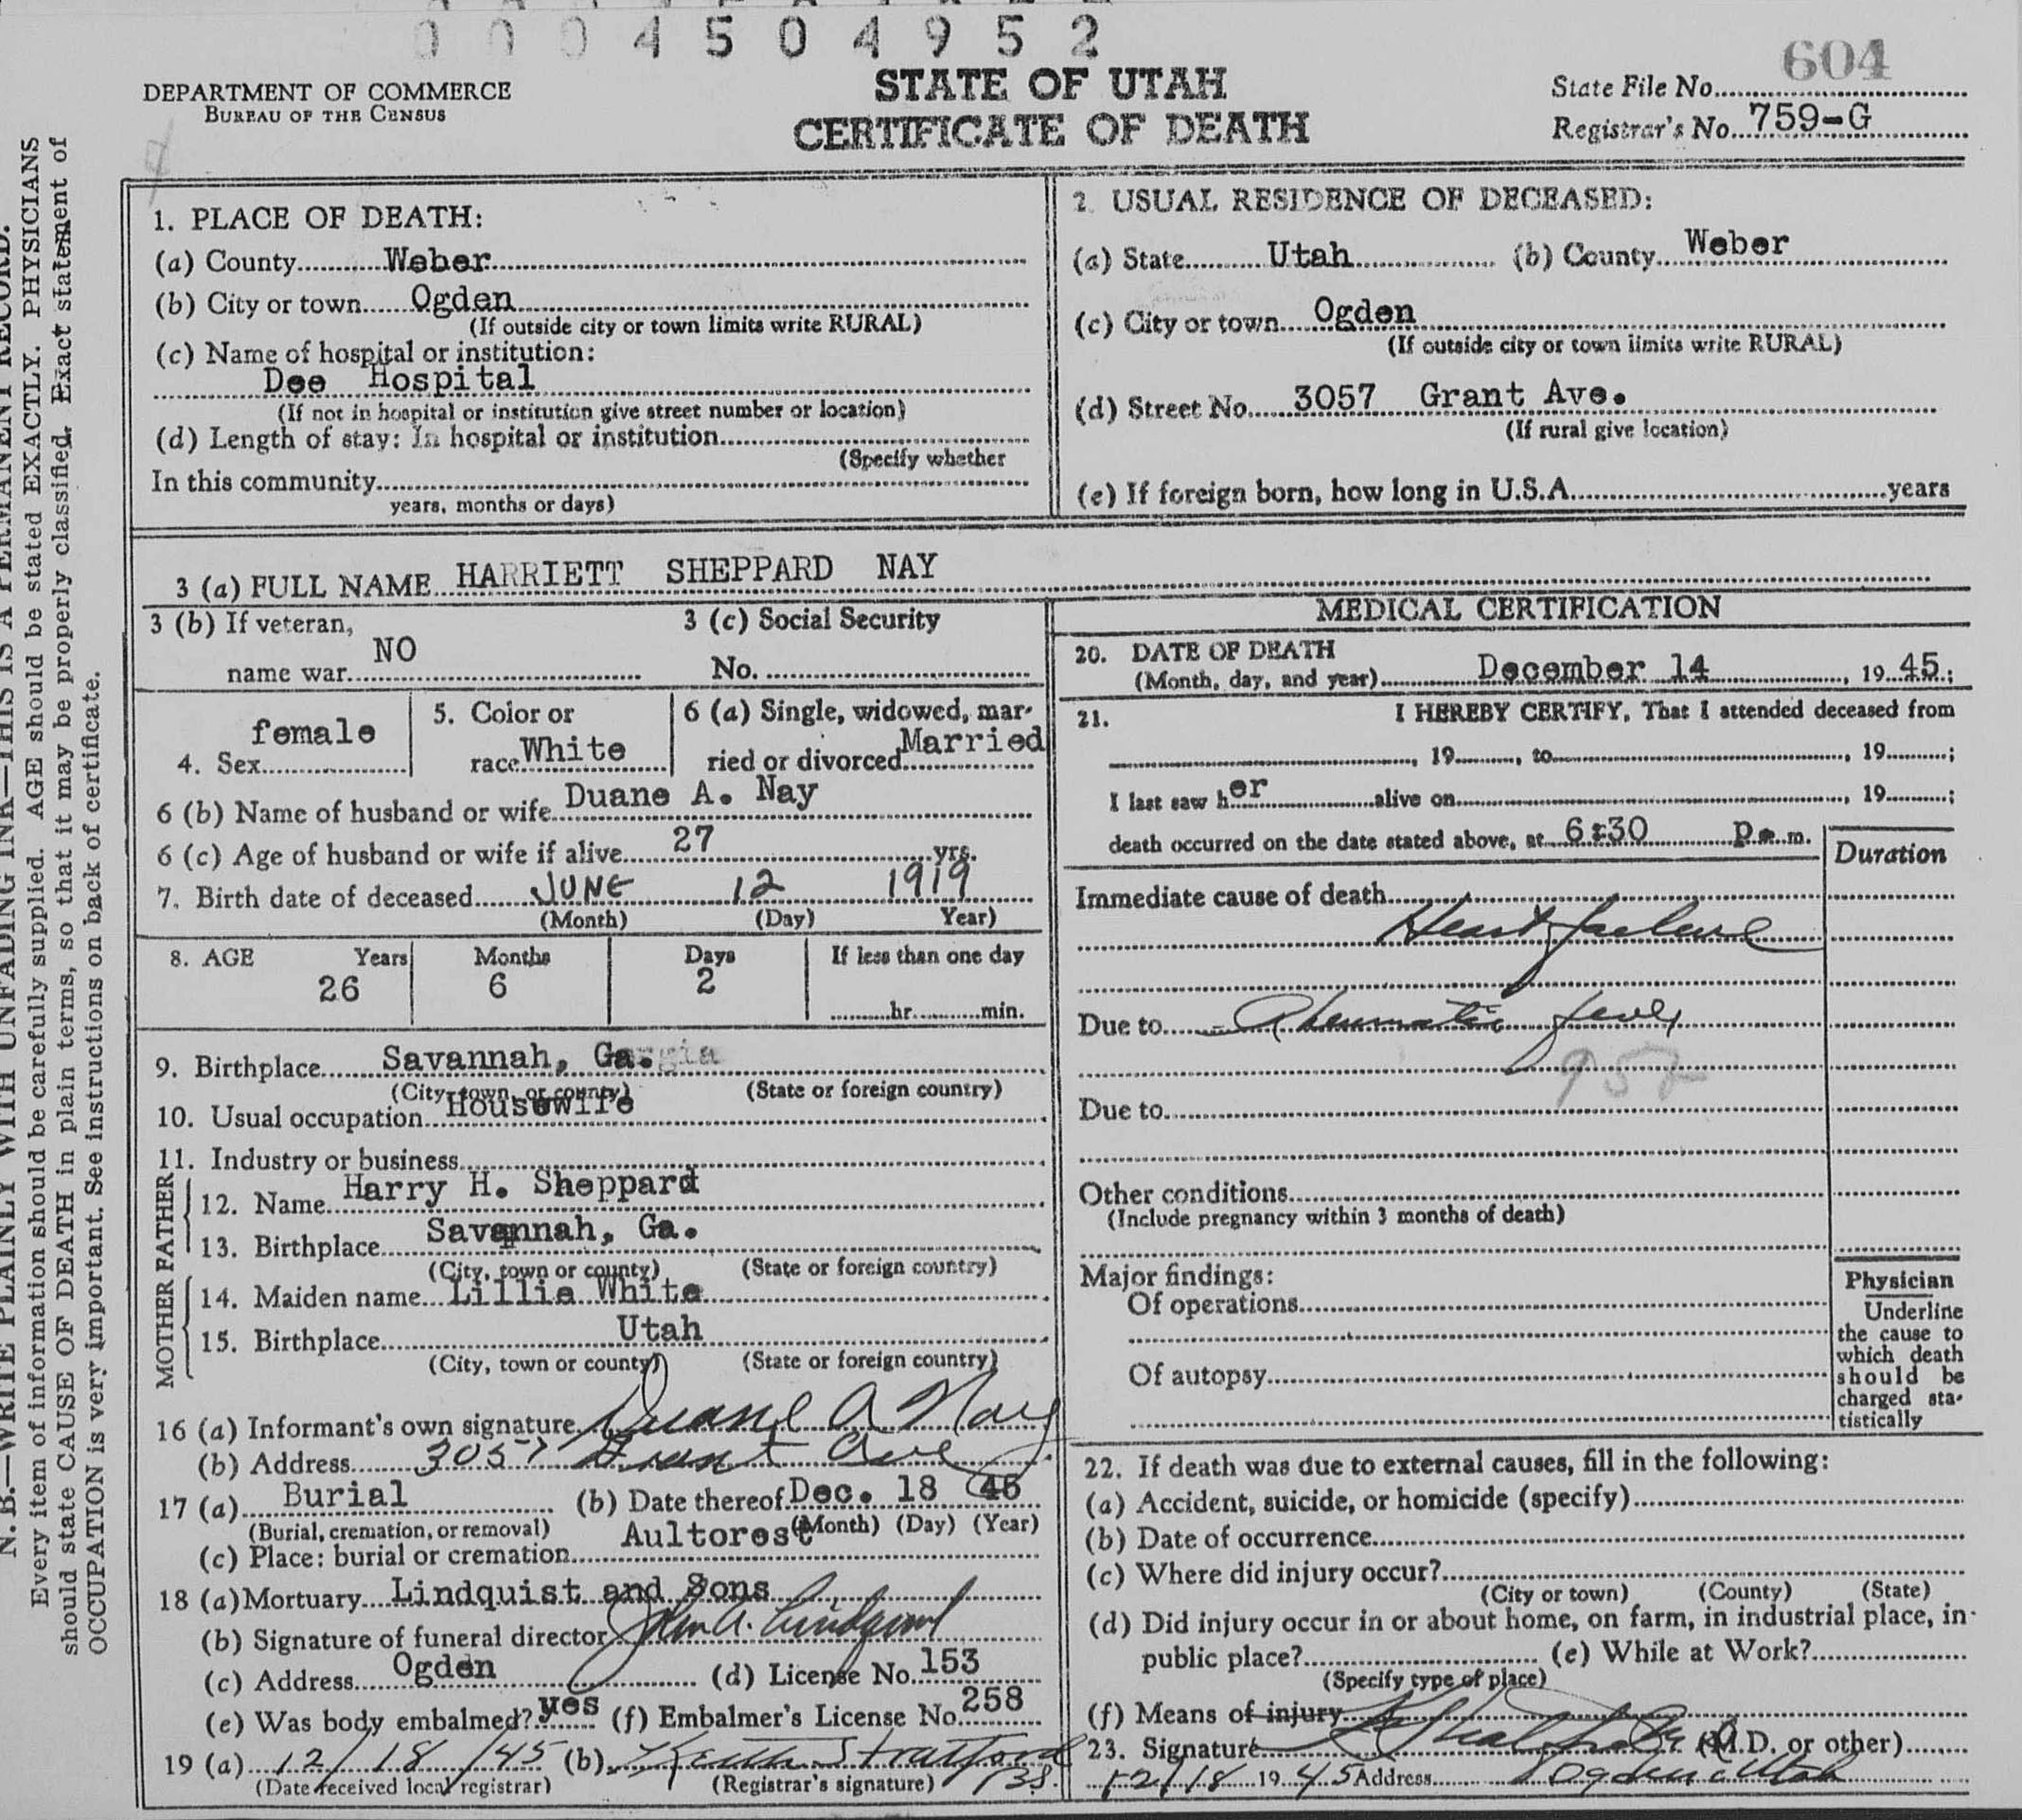 0004504952
604
DEPARTMENT OF COMMERCE
BUREAU OF THE CENSUS
STATE OF UTAH
CERTIFICATE OF DEATH
State File No.
Registrar's No. 759-G
N. B.—WRITE PLAINLY WITH UNFADING INK—THIS IS A PERMANENT RECORD.
Every item of information should be carefully supplied. AGE should be stated EXACTLY. PHYSICIANS
should state CAUSE OF DEATH in plain terms, so that it may be properly classified. Exact statement of
OCCUPATION is very important. See instructions on back of certificate.
1. PLACE OF DEATH:
(a) County Weber
(b) City or town Ogden
(If outside city or town limits write RURAL)
(c) Name of hospital or institution:
Dee Hospital
(If not in hospital or institution give street number or location)
(d) Length of stay: In hospital or institution
(Specify whether
In this community
years, months or days)
2. USUAL RESIDENCE OF DECEASED:
(a) State Utah (b) County Weber
(c) City or town Ogden
(If outside city or town limits write RURAL)
(d) Street No. 3057 Grant Ave.
(If rural give location)
(e) If foreign born, how long in U.S.A. years
3 (a) FULL NAME HARRIETT SHEPPARD NAY
3 (b) If veteran, 3 (c) Social Security
name war NO No.
4. Sex female
5. Color or
race White
6 (a) Single, widowed, mar-
ried or divorced Married
6 (b) Name of husband or wife Duane A. Nay
6 (c) Age of husband or wife if alive 27 yrs.
7. Birth date of deceased JUNE 12 1919
(Month) (Day) Year)
8. AGE Years Months Days If less than one day
26 6 2 hr. min.
9. Birthplace Savannah, Ga.
(City, town or county) (State or foreign country)
10. Usual occupation Housewife
11. Industry or business
FATHER
12. Name Harry H. Sheppard
13. Birthplace Savannah, Ga.
(City, town or county) (State or foreign country)
MOTHER
14. Maiden name Lillie White
15. Birthplace Utah
(City, town or county) (State or foreign country)
16 (a) Informant's own signature Duane A Nay
(b) Address 3057 Grant Ave
17 (a) Burial (b) Date thereof Dec. 18 45
(Burial, cremation, or removal) (Month) (Day) (Year)
(c) Place: burial or cremation Aultorest
18 (a) Mortuary Lindquist and Sons
(b) Signature of funeral director John A. Lindquist
(c) Address Ogden (d) License No. 153
(e) Was body embalmed? yes (f) Embalmer's License No. 258
19 (a) 12/18/45 (b) Keith Stratford
(Date received local registrar) (Registrar's signature)
MEDICAL CERTIFICATION
20. DATE OF DEATH
(Month, day, and year) December 14, 19 45;
21. I HEREBY CERTIFY, That I attended deceased from
, 19 , to , 19 ;
I last saw her alive on , 19 ;
death occurred on the date stated above, at 6:30 p.m.
Duration
Immediate cause of death
Heart failure
Due to Rheumatic fever
Due to
Other conditions
(Include pregnancy within 3 months of death)
Major findings:
Of operations
Of autopsy
Physician
Underline
the cause to
which death
should be
charged sta-
tistically
22. If death was due to external causes, fill in the following:
(a) Accident, suicide, or homicide (specify)
(b) Date of occurrence
(c) Where did injury occur?
(City or town) (County) (State)
(d) Did injury occur in or about home, on farm, in industrial place, in
public place? (e) While at Work?
(Specify type of place)
(f) Means of injury
23. Signature (M.D. or other)
12/18 19 45 Address Ogden Utah